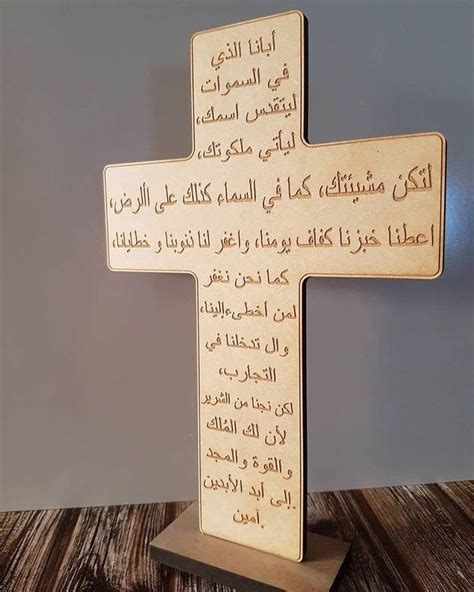 أبانا الذي
في السموات
ليتقدس اسمك،
ليأتي ملكوتك،
لتكن مشيئتك، كما في السماء كذلك على األرض،
اعطنا خبزنا كفاف يومنا، واغفر لنا ذنوبنا و خطايانا،
كما نحن نغفر
لمن أخطىء إلينا،
وال تدخلنا في
التجارب،
لكن نجنا من الشرير
لأن لك المُلك
والقوة والمجد
إلى أبد الأبدين.
آمين.